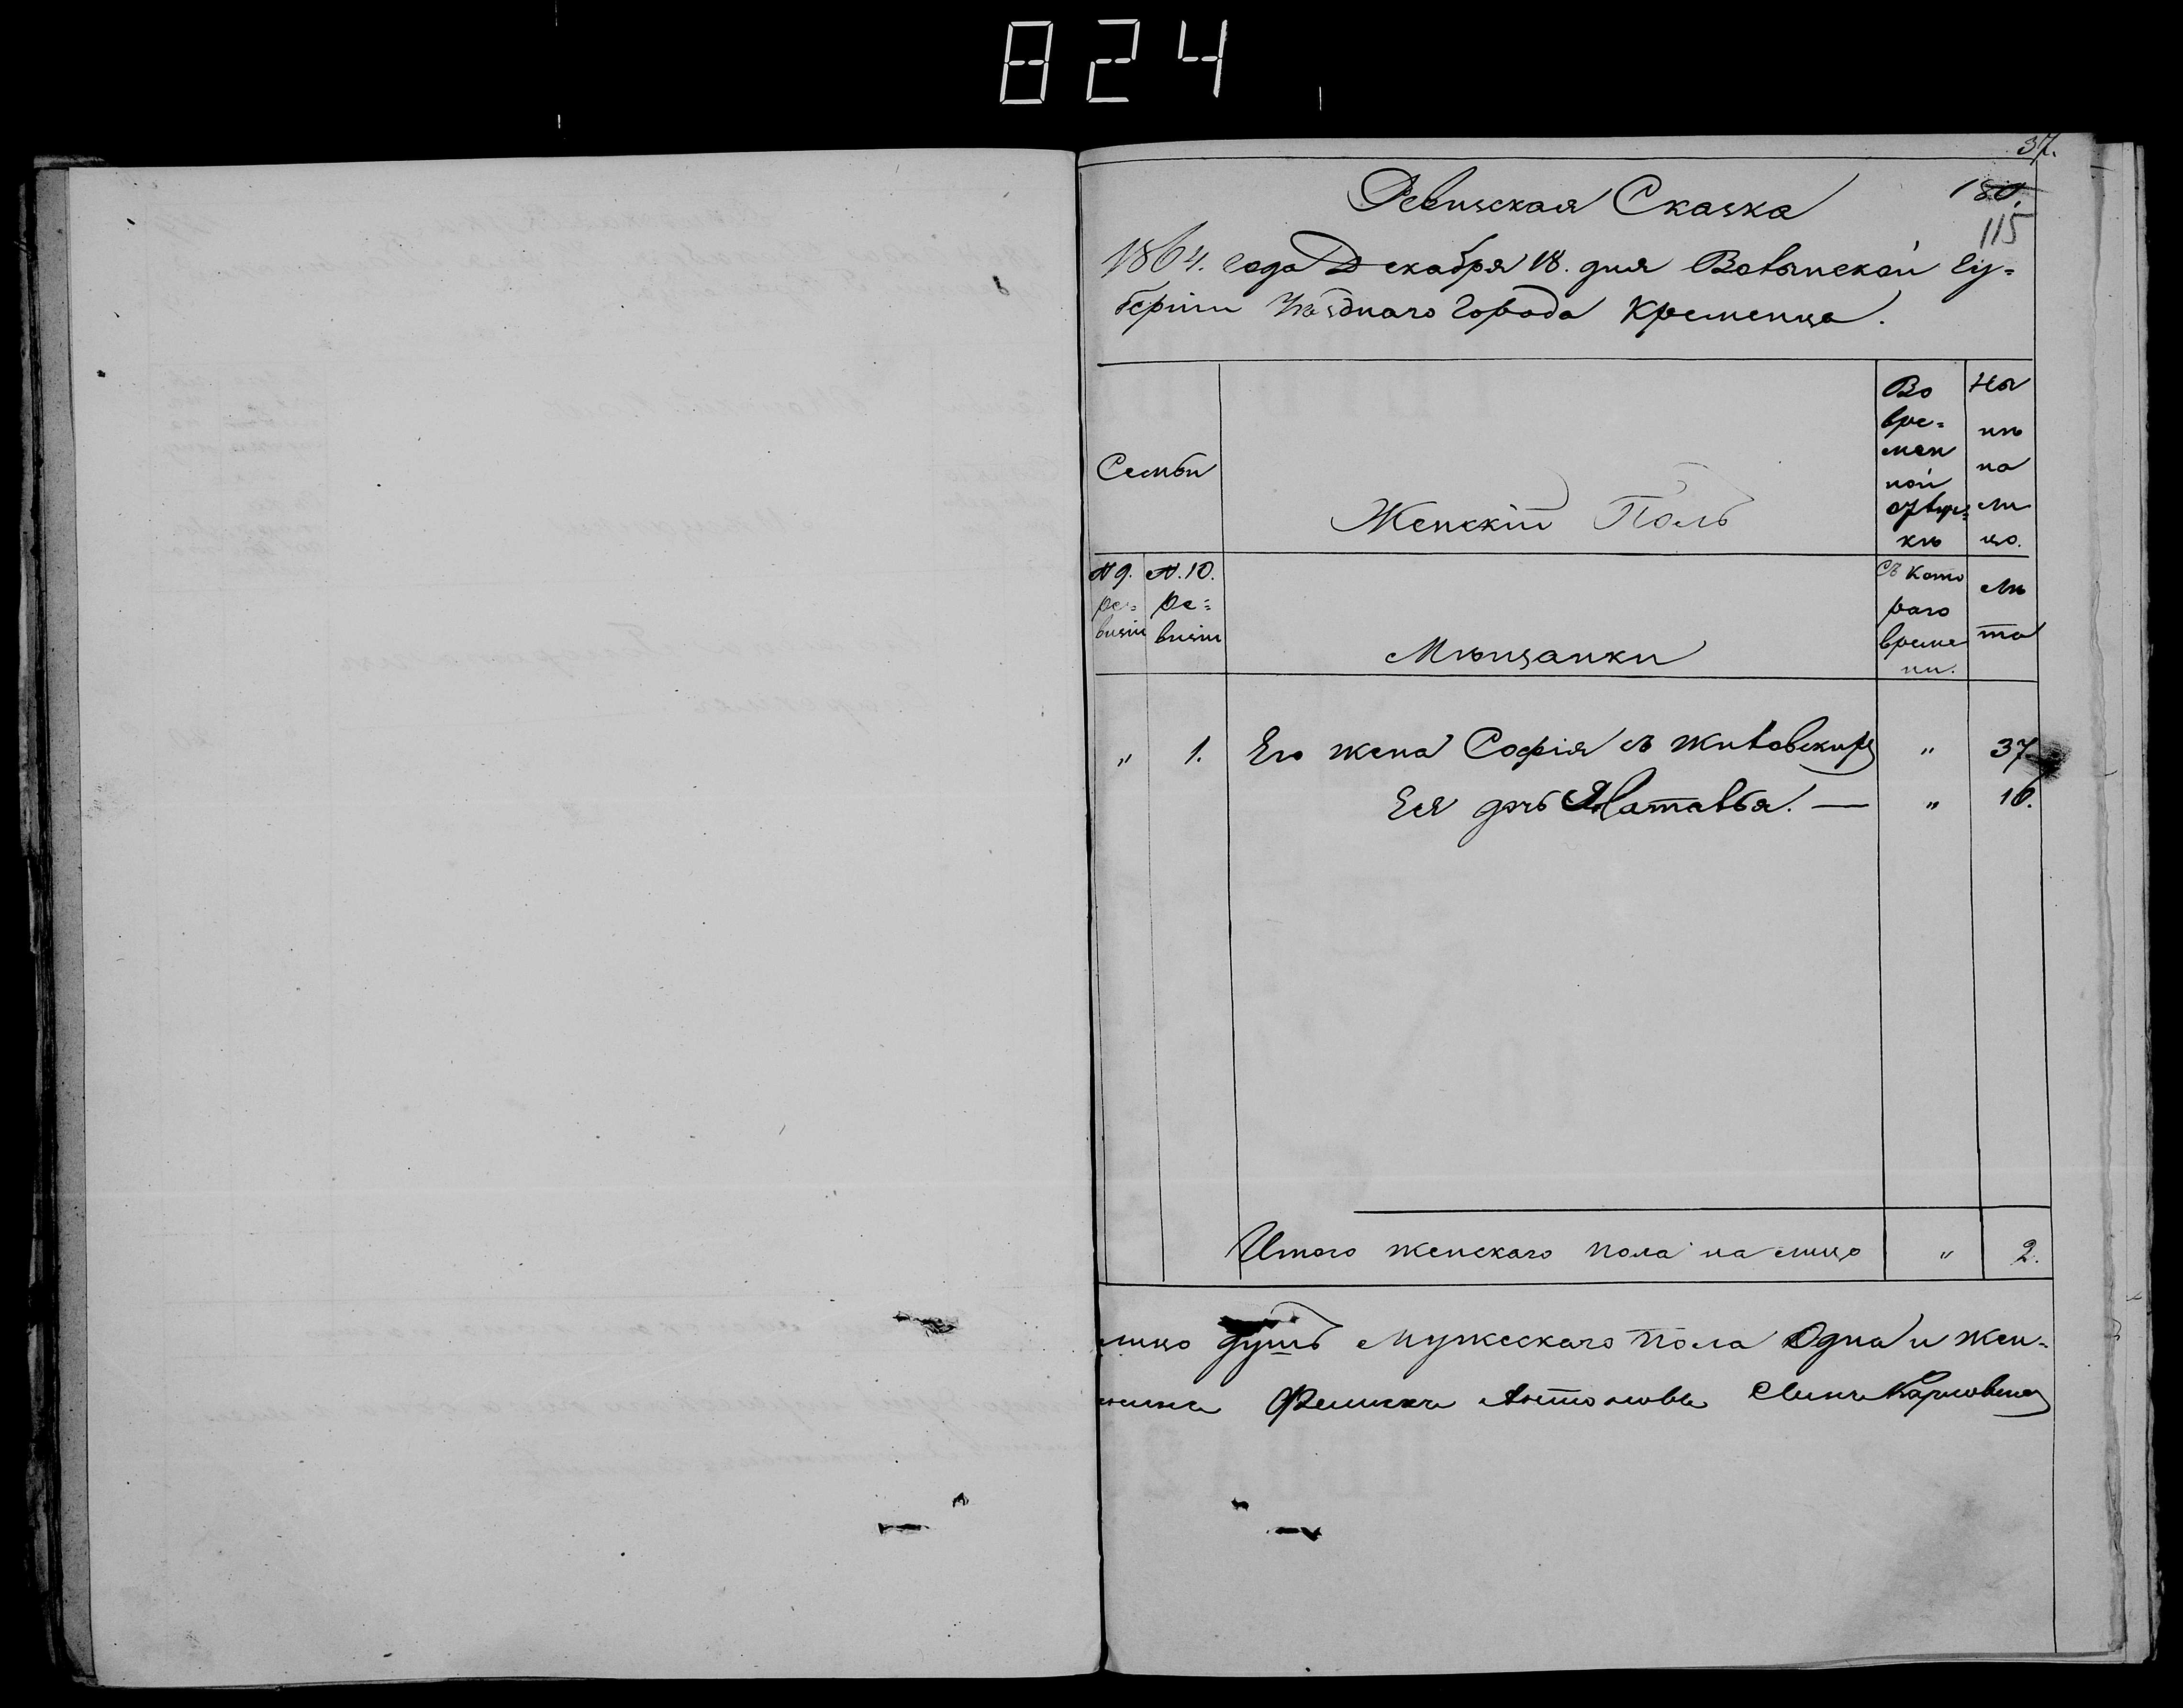 824
37.
180.
115
Ревизская Сказка
1864. года Декабря 18. дня Волынской Гу=
берніи Уѣзднаго Города Кременца.
Семьи
Женскій Полъ
Во вре=менной отлуч=кѣ
Нынѣ на лицо.
№ 9. ре=визіи
№. 10. ре=визіи
Мѣщанки
съ котораго времени.
Лѣта
" 1. Его жена Софія съ Житовскихъ " 37
Ея дочь Наталья. — " 16.
Итого женскаго пола на лицо " 2.
лицо душъ мужескаго пола одна и жен-
Феликсъ Антоновъ